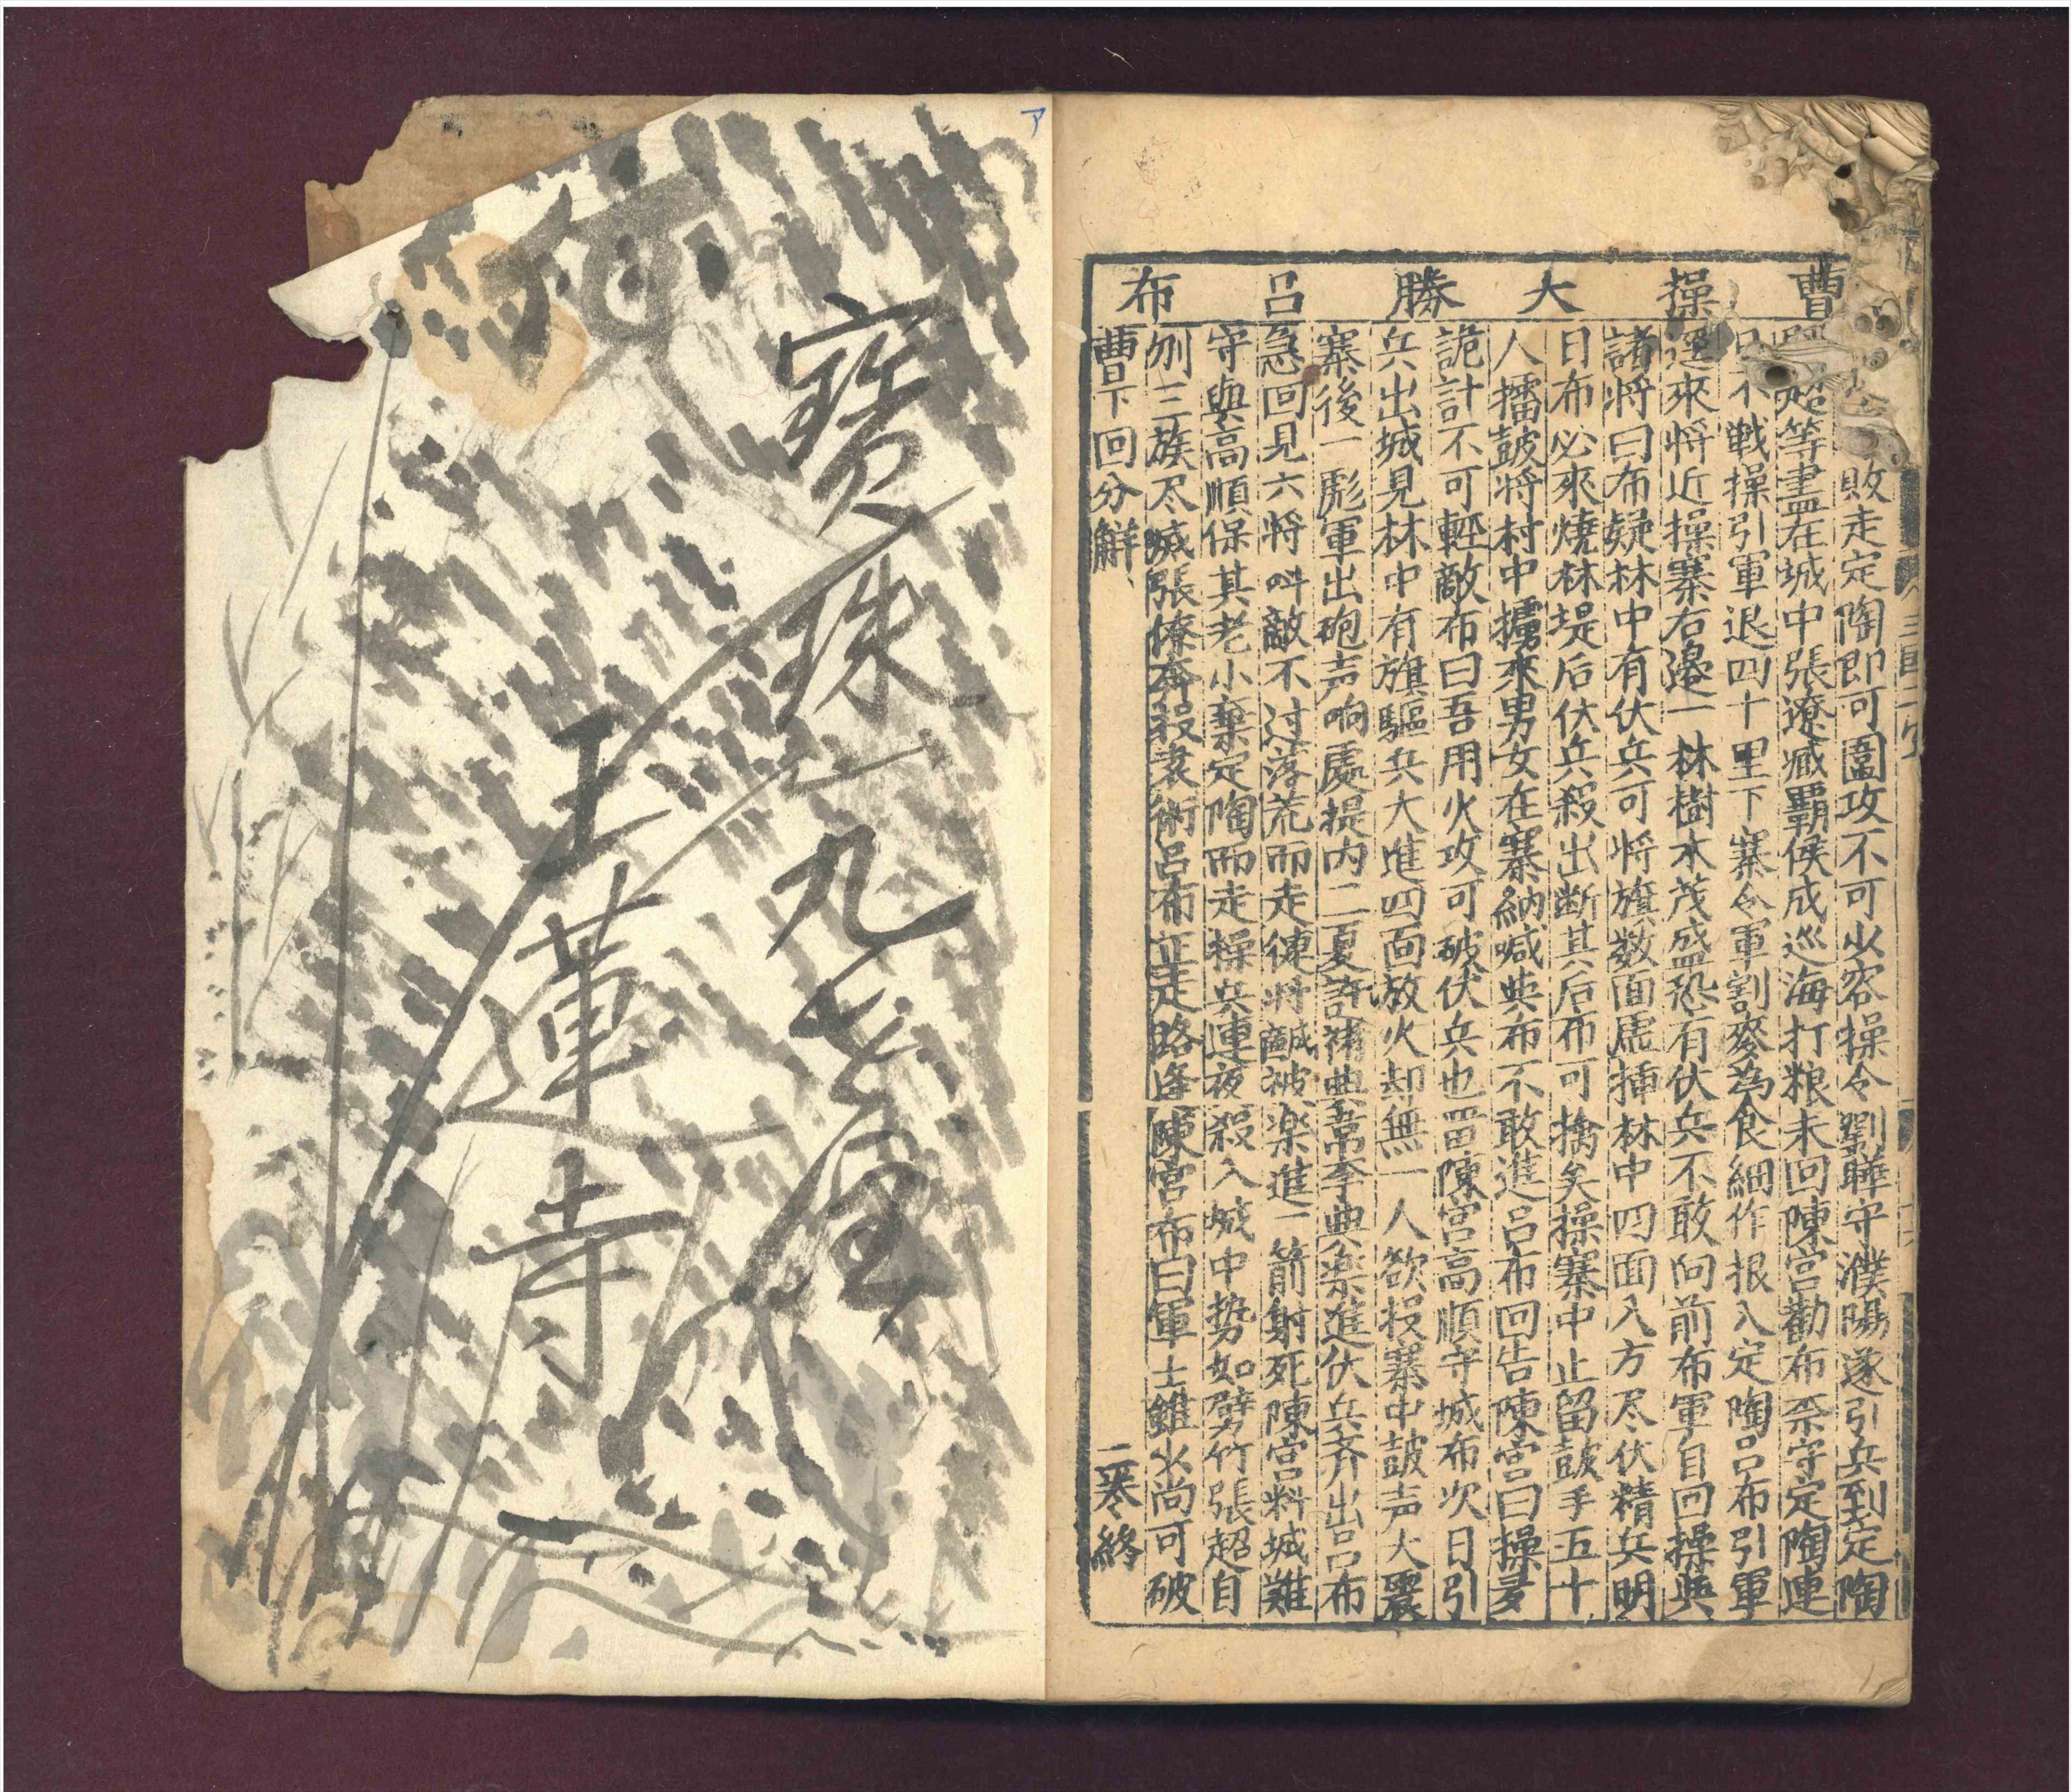 曹操大勝呂布
敗走定陶即可圖攻不可少容操令劉曄守濮陽遂引兵到定陶
超等盡在城中張遼臧覇侯成巡海打粮未回陳宮勸布柰守定陶連
日不戦操引軍退四十里下寨令軍割麥為食細作报入定陶呂布引軍
迳來将近操寨右邉一林樹木茂盛恐有伏兵不敢向前布軍自回操與
諸将曰布疑林中有伏兵可将旗数面虛揷林中四面八方尽伏精兵明
日布必來燒林堤后伏兵殺出断其后布可擒矣操寨中止留皷手五十
人擂皷将村中擄來男女在寨納喊與布不敢進呂布回告陳宮曰操多
詭計不可輕敵布曰吾用火攻可破伏兵也畄陳宮高順守城布次日引
兵出城見林中有旗驅兵大進四面放火却無一人欲投寨中皷声大震
寨後一彪軍出砲声响處提内二夏許褚典韋李典楽進伏兵齐出呂布
急回見六将呌敵不过落荒而走徤将被楽進一箭射死陳宮料城難
守與高順保其老小棄定陶而走操兵連夜殺入城中势如劈竹張超自
刎三族尽㓕張遼奔投袁術呂布正走路逢陳宮布曰軍士雖少尚可破
曹下回分觧
二卷終
三国二卷
寳珠
九
王蓮寺
ア